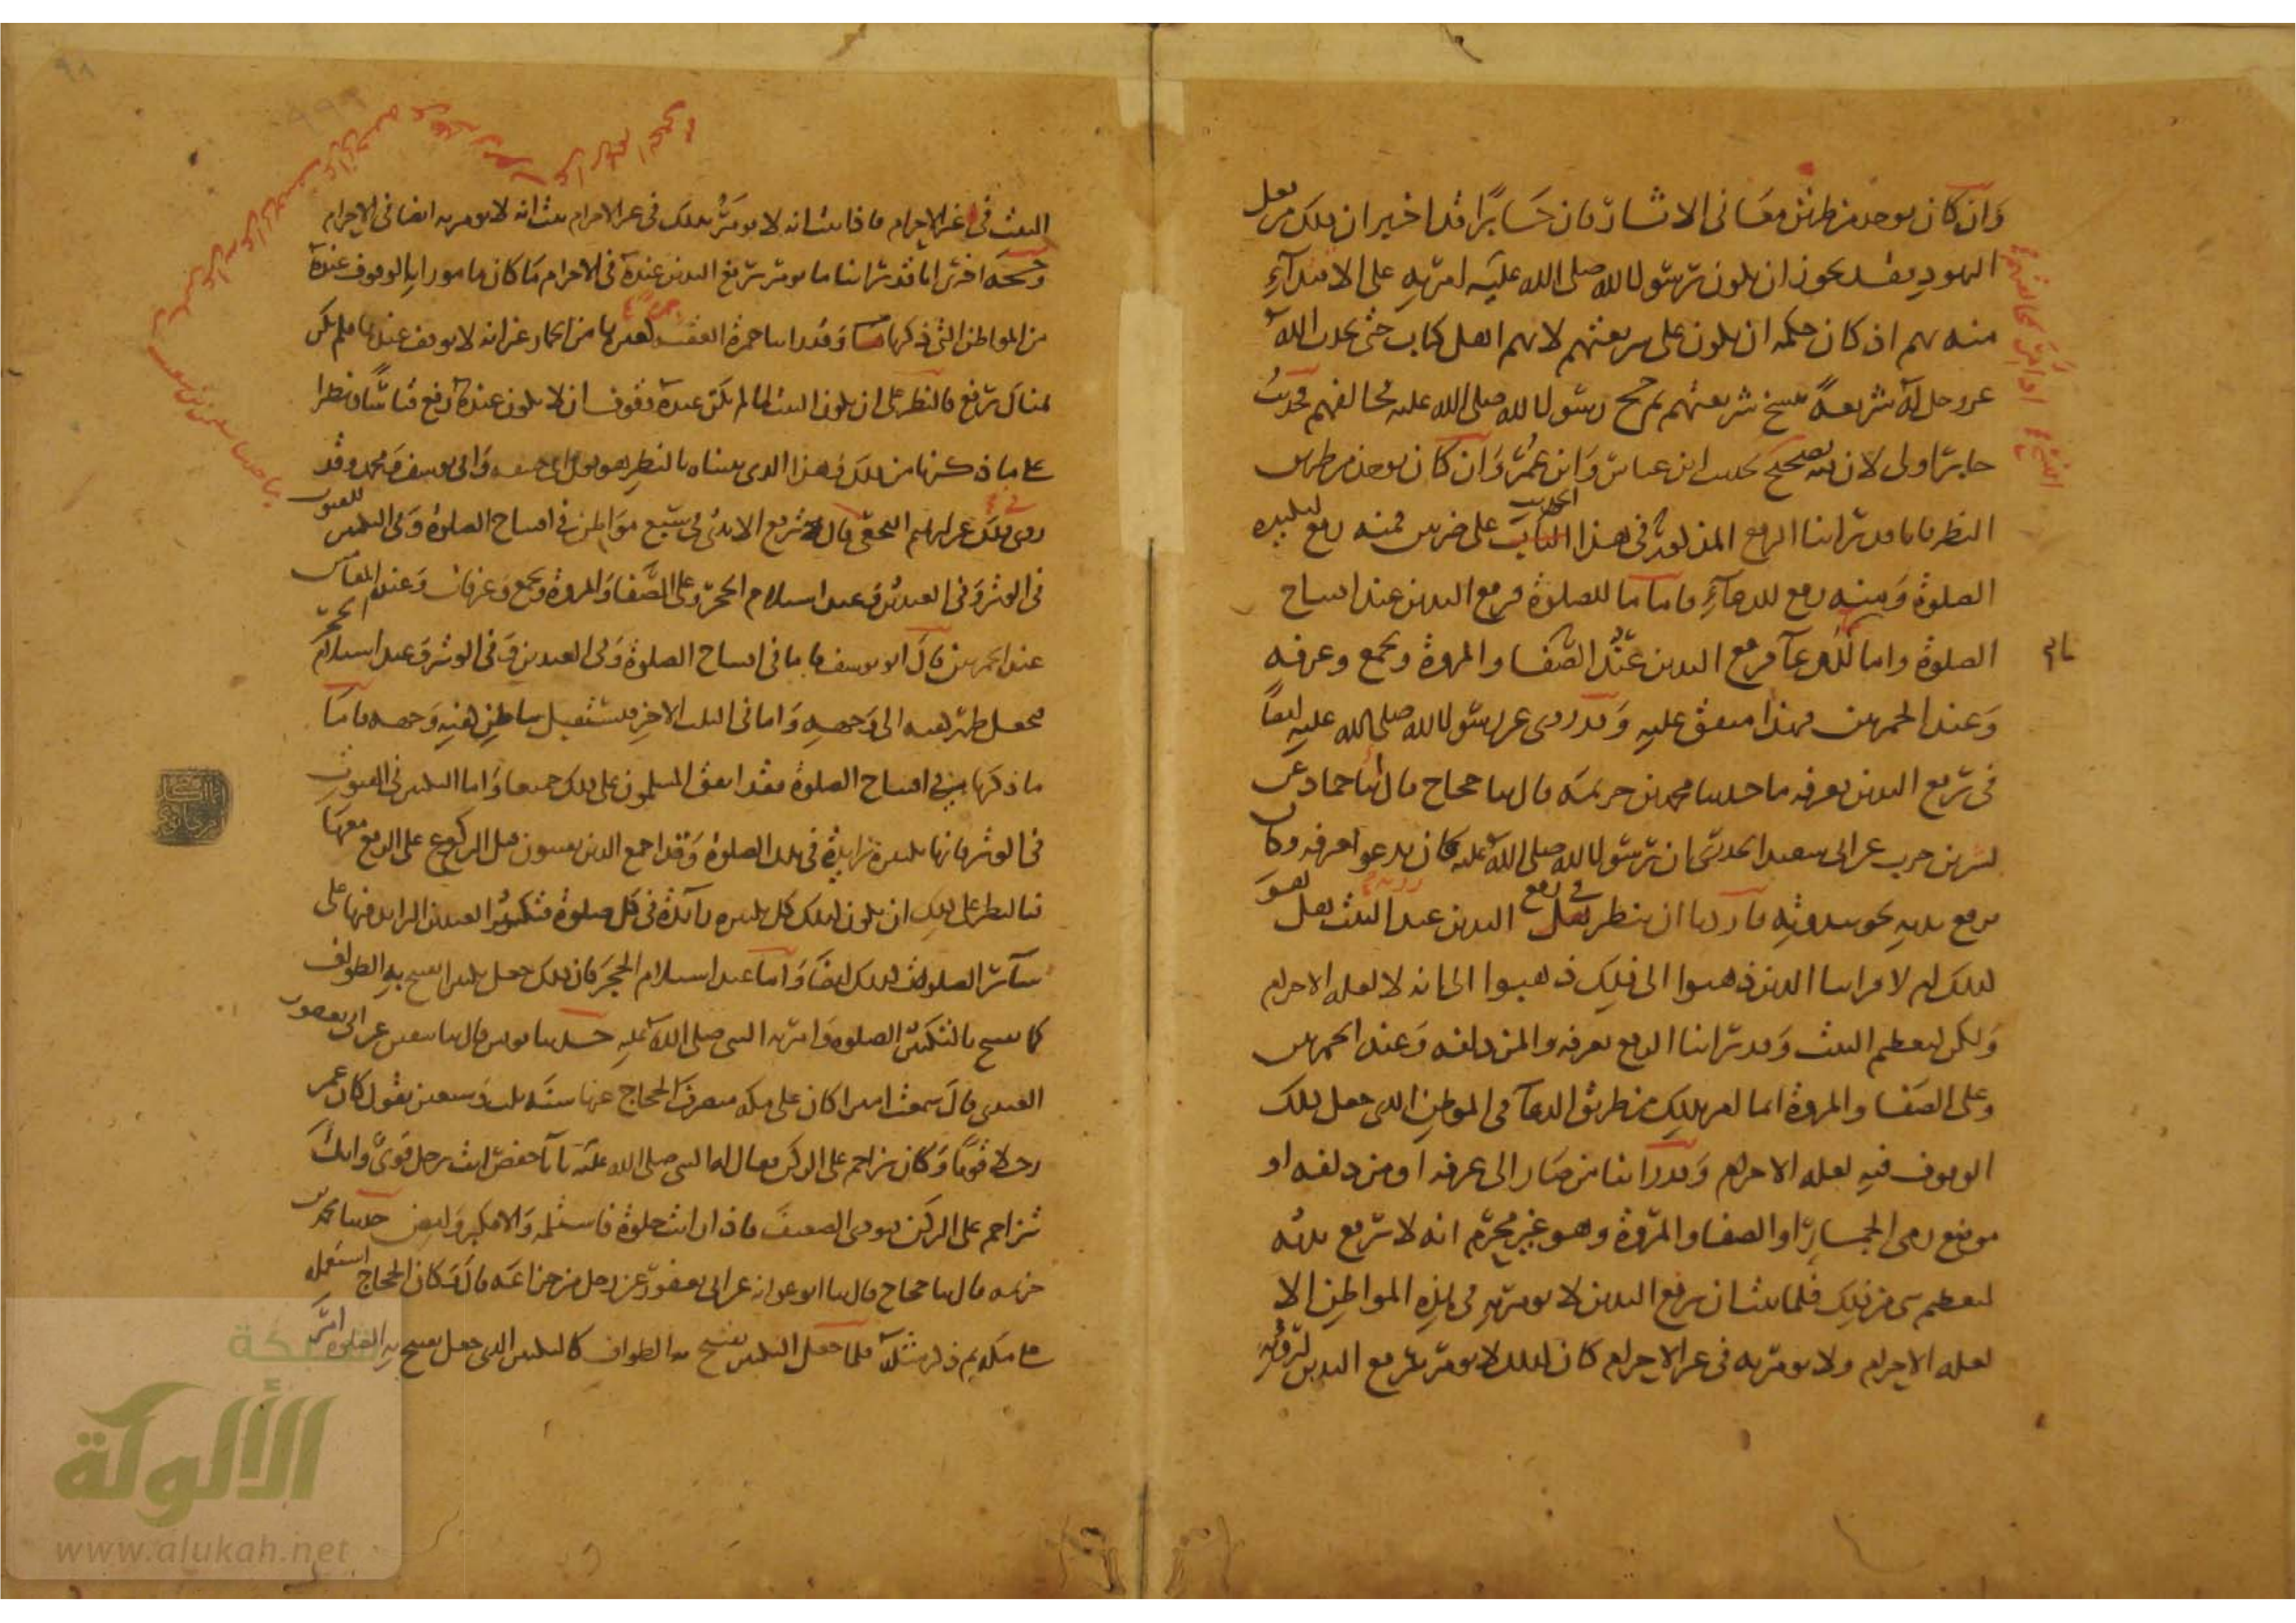 وان كان يوخذ من طريق معانى الاثار فان جابرا قد اخبر ان ذلك من فعل
اليهود فقد يجوز ان يكون رسول الله صلى الله عليه امر به على الاقتداء
منه بهم اذ كان حكمه ان يكون على شريعتهم لانهم اهل كتاب حتى يحدث الله
عز وجل له شريعة تنسخ شريعتهم ثم حج رسول الله صلى الله عليه فخالفهم فحديث
جابر اولى لان فيه تصحيح حديث ابن عباس وابن عمر وان كان يوخذ من طريق
النظر فانا قد راينا الرفع المذكور فى هذا الحديث على ضربين فمنه رفع لتكبيرة
الصلوة ومنه رفع للدعآء فاما ما للصلوة فرفع اليدين عند افتتاح
الصلوة واما للدعآ فرفع اليدين عند الصفا والمروة وبجمع وعرفة
وعند الجمرتين فهذا متفق عليه وقد روى عن رسول الله صلى الله عليه ايضا
فى رفع اليدين بعرفة ما حدثنا محمد بن خزيمة قال ثنا حجاج قال ثنا حماد عن
بشر بن حرب عن ابى سعيد الخدرى ان رسول الله صلى الله عليه كان يدعو بعرفة وكان
يرفع يديه نحو ثندوتيه فاردنا ان ننظر فى رفع اليدين عند البيت هل هو
كذلك ام لا فراينا الذين ذهبوا الى ذلك ذهبوا الى انه لا لعلة الاحرام
ولكن لتعظيم البيت وقد راينا الرفع بعرفة والمزدلفة وعند الجمرتين
وعلى الصفا والمروة انما امر بذلك من طريق الدعآ فى الموطن الذى جعل ذلك
الوقوف فيه لعلة الاحرام وقد راينا من صار الى عرفة او مزدلفة او
موضع رمى الجمار او الصفا والمروة وهو غير محرم انه لا يرفع يديه
لتعظيم شى من ذلك فلما ثبت ان رفع اليدين لا يومر به فى هذه المواطن الا
لعلة الاحرام ولا يومر به فى غير الاحرام كان كذلك لا يومر برفع اليدين لرؤية
البيت فى غير الاحرام فاذا ثبت انه لا يومر بذلك فى غير الاحرام ثبت انه لا يومر به ايضا فى الاحرام
وحجة اخرى انا قد راينا ما يومر برفع اليدين عنده فى الاحرام ما كان مامورا بالوقوف عنده
من المواطن التى ذكرنا وقد راينا جمرة العقبة كغيرها من الجمار غير انه لا يوقف عندها فلم يكن
هناك رفع فالنظر على ان يكون البيت لما لم يكن عنده وقوف ان لا يكون عنده رفع قياسا ونظرا
على ما ذكرنا من ذلك وهذا الذى بيناه بالنظر هو قول ابى حنيفة وابى يوسف ومحمد وقد
روى ذلك عن ابرهيم النخعى قال ترفع الايدى فى سبع مواطن فى افتتاح الصلوة وفى التكبير للقنوت
فى الوتر وفى العيدين وعند استلام الحجر وعلى الصفا والمروة وبجمع وعرفات وعند المقامين
عند الجمرتين قال ابو يوسف فاما فى افتتاح الصلوة وفى العيدين وفى الوتر وعند استلام الحجر
فيجعل ظهر كفيه الى وجهه واما فى الثلث الاخر فيستقبل بباطن كفيه وجهه فاما
ما ذكرنا فى افتتاح الصلوة فقد اتفق المسلمون على ذلك جميعا واما التكبير فى القنوت
فى الوتر فانها تكبيرة زايدة فى تلك الصلوة وقد اجمع الذين يقنتون قبل الركوع على الرفع معها
فالنظر على ذلك ان يكون كذلك كل تكبيرة زآئدة فى كل صلوة فتكبير العيدين الزايد فيها على
سآئر الصلوات كذلك ايضا واما عند استلام الحجر فان ذلك جعل تكبيرا يفتتح به الطواف
كما يفتتح بالتكبير الصلوة وامر به النبى صلى الله عليه حدثنا يونس قال ثنا سفين عن ابى يعفور
العبدى قال سمعت اميرا كان على مكة منصرف الحجاج عنها سنة ثلث وسبعين يقول كان عمر
رجلا قويا وكان يزاحم على الركن فقال له النبى صلى الله عليه يا ابا حفص انت رجل قوى وانك
تزاحم على الركن فتوذى الضعيف فاذا رايت خلوة فاستلمه والا فكبر وامض حدثنا محمد بن
خزيمة قال ثنا حجاج قال ثنا ابو عوانة عن ابى يعفور عن رجل من خزاعة قال وكان الحجاج استعمله
على مكة ثم ذكر مثله فلما جعل التكبير يفتتح به الطواف كالتكبير الذى جعل يفتتح به الصلوة امر
شبكة
الألوكة
www.alukah.net